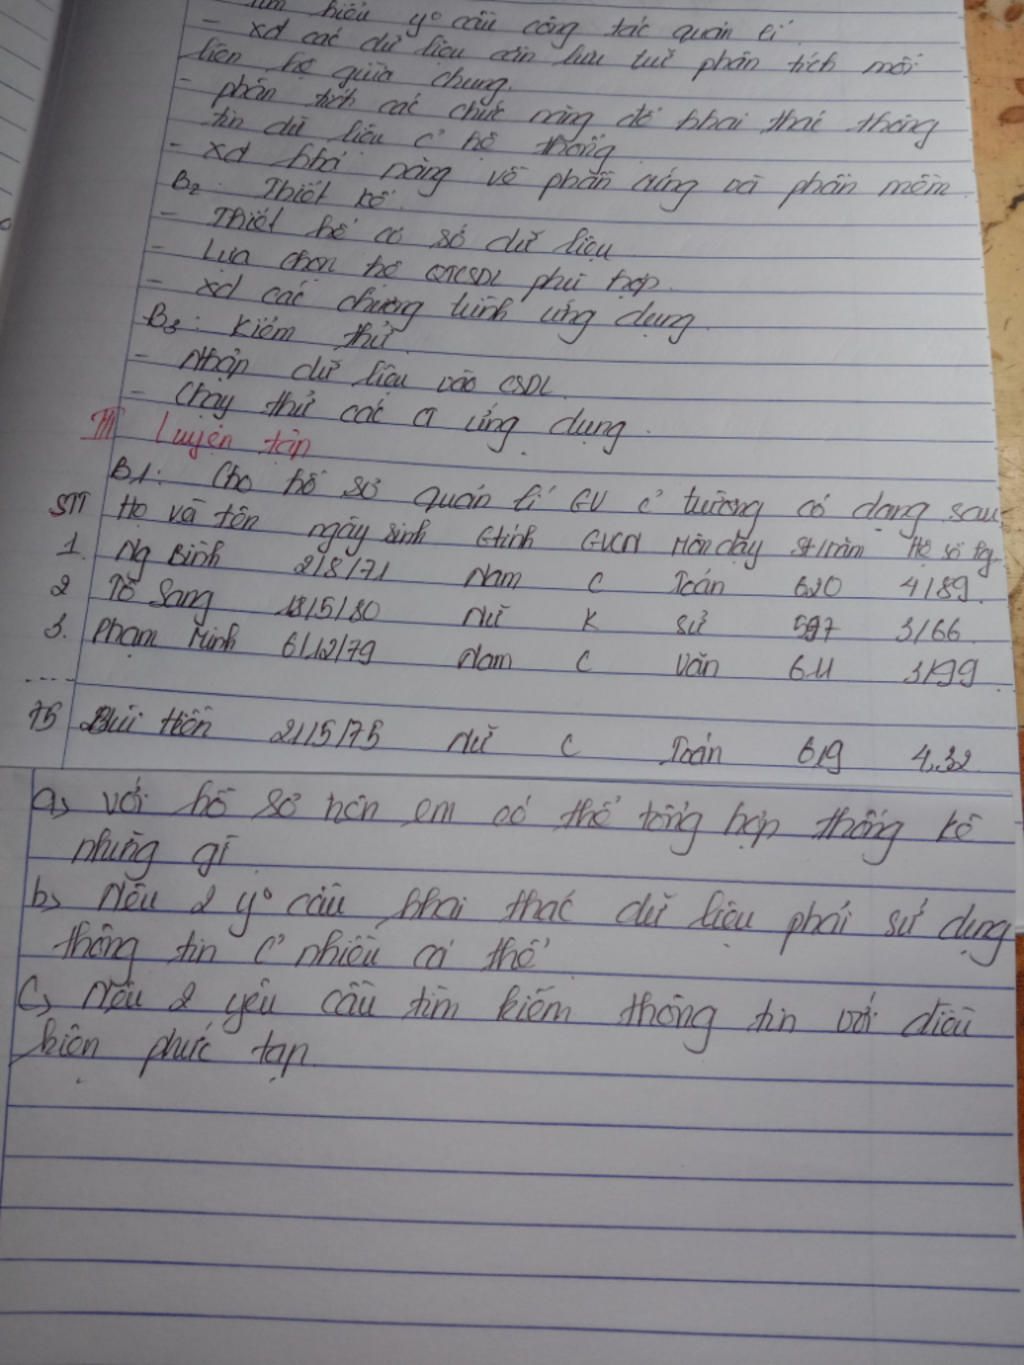 hiểu yº cầu công tác quản lí
- xđ các dữ liệu cần lưu trữ phân tích mối
liên hệ giữa chúng.
- phân tích các chức năng để khai thác thông
tin dữ liệu ở hệ thống
- xđ khả năng về phần cứng và phần mềm
B2: Thiết kế.
- Thiết kế cơ sở dữ liệu
- Lựa chọn hệ QTCSDL phù hợp.
- xd các chương trình ứng dụng
B3: Kiểm thử
- Nhập dữ liệu vào CSDL
- Chạy thử các ứng dụng.
III Luyện tập
B1: Cho hồ sơ quản lí GV ở trường có dạng sau
STT Họ và tên ngày sinh Gtính GVCN Môn dạy St/năm Hệ số lg
1. Ng Bình 2/8/71 Nam C Toán 620 4/89.
2 Tô Sang 18/5/80 Nữ K Sử 597 3/66
3. Phạm Minh 6/12/79 Nam C Văn 611 3/99
....
75 Bùi Hiền 21/5/75 Nữ C Toán 619 4,32
a, với hồ sơ hên em có thể tổng hợp thống kê
những gì
b, Nêu 2 yº cầu khai thác dữ liệu phải sử dụng
thông tin ở nhiều cá thể
c, Nêu 2 yêu cầu tìm kiếm thông tin với điều
kiện phức tạp